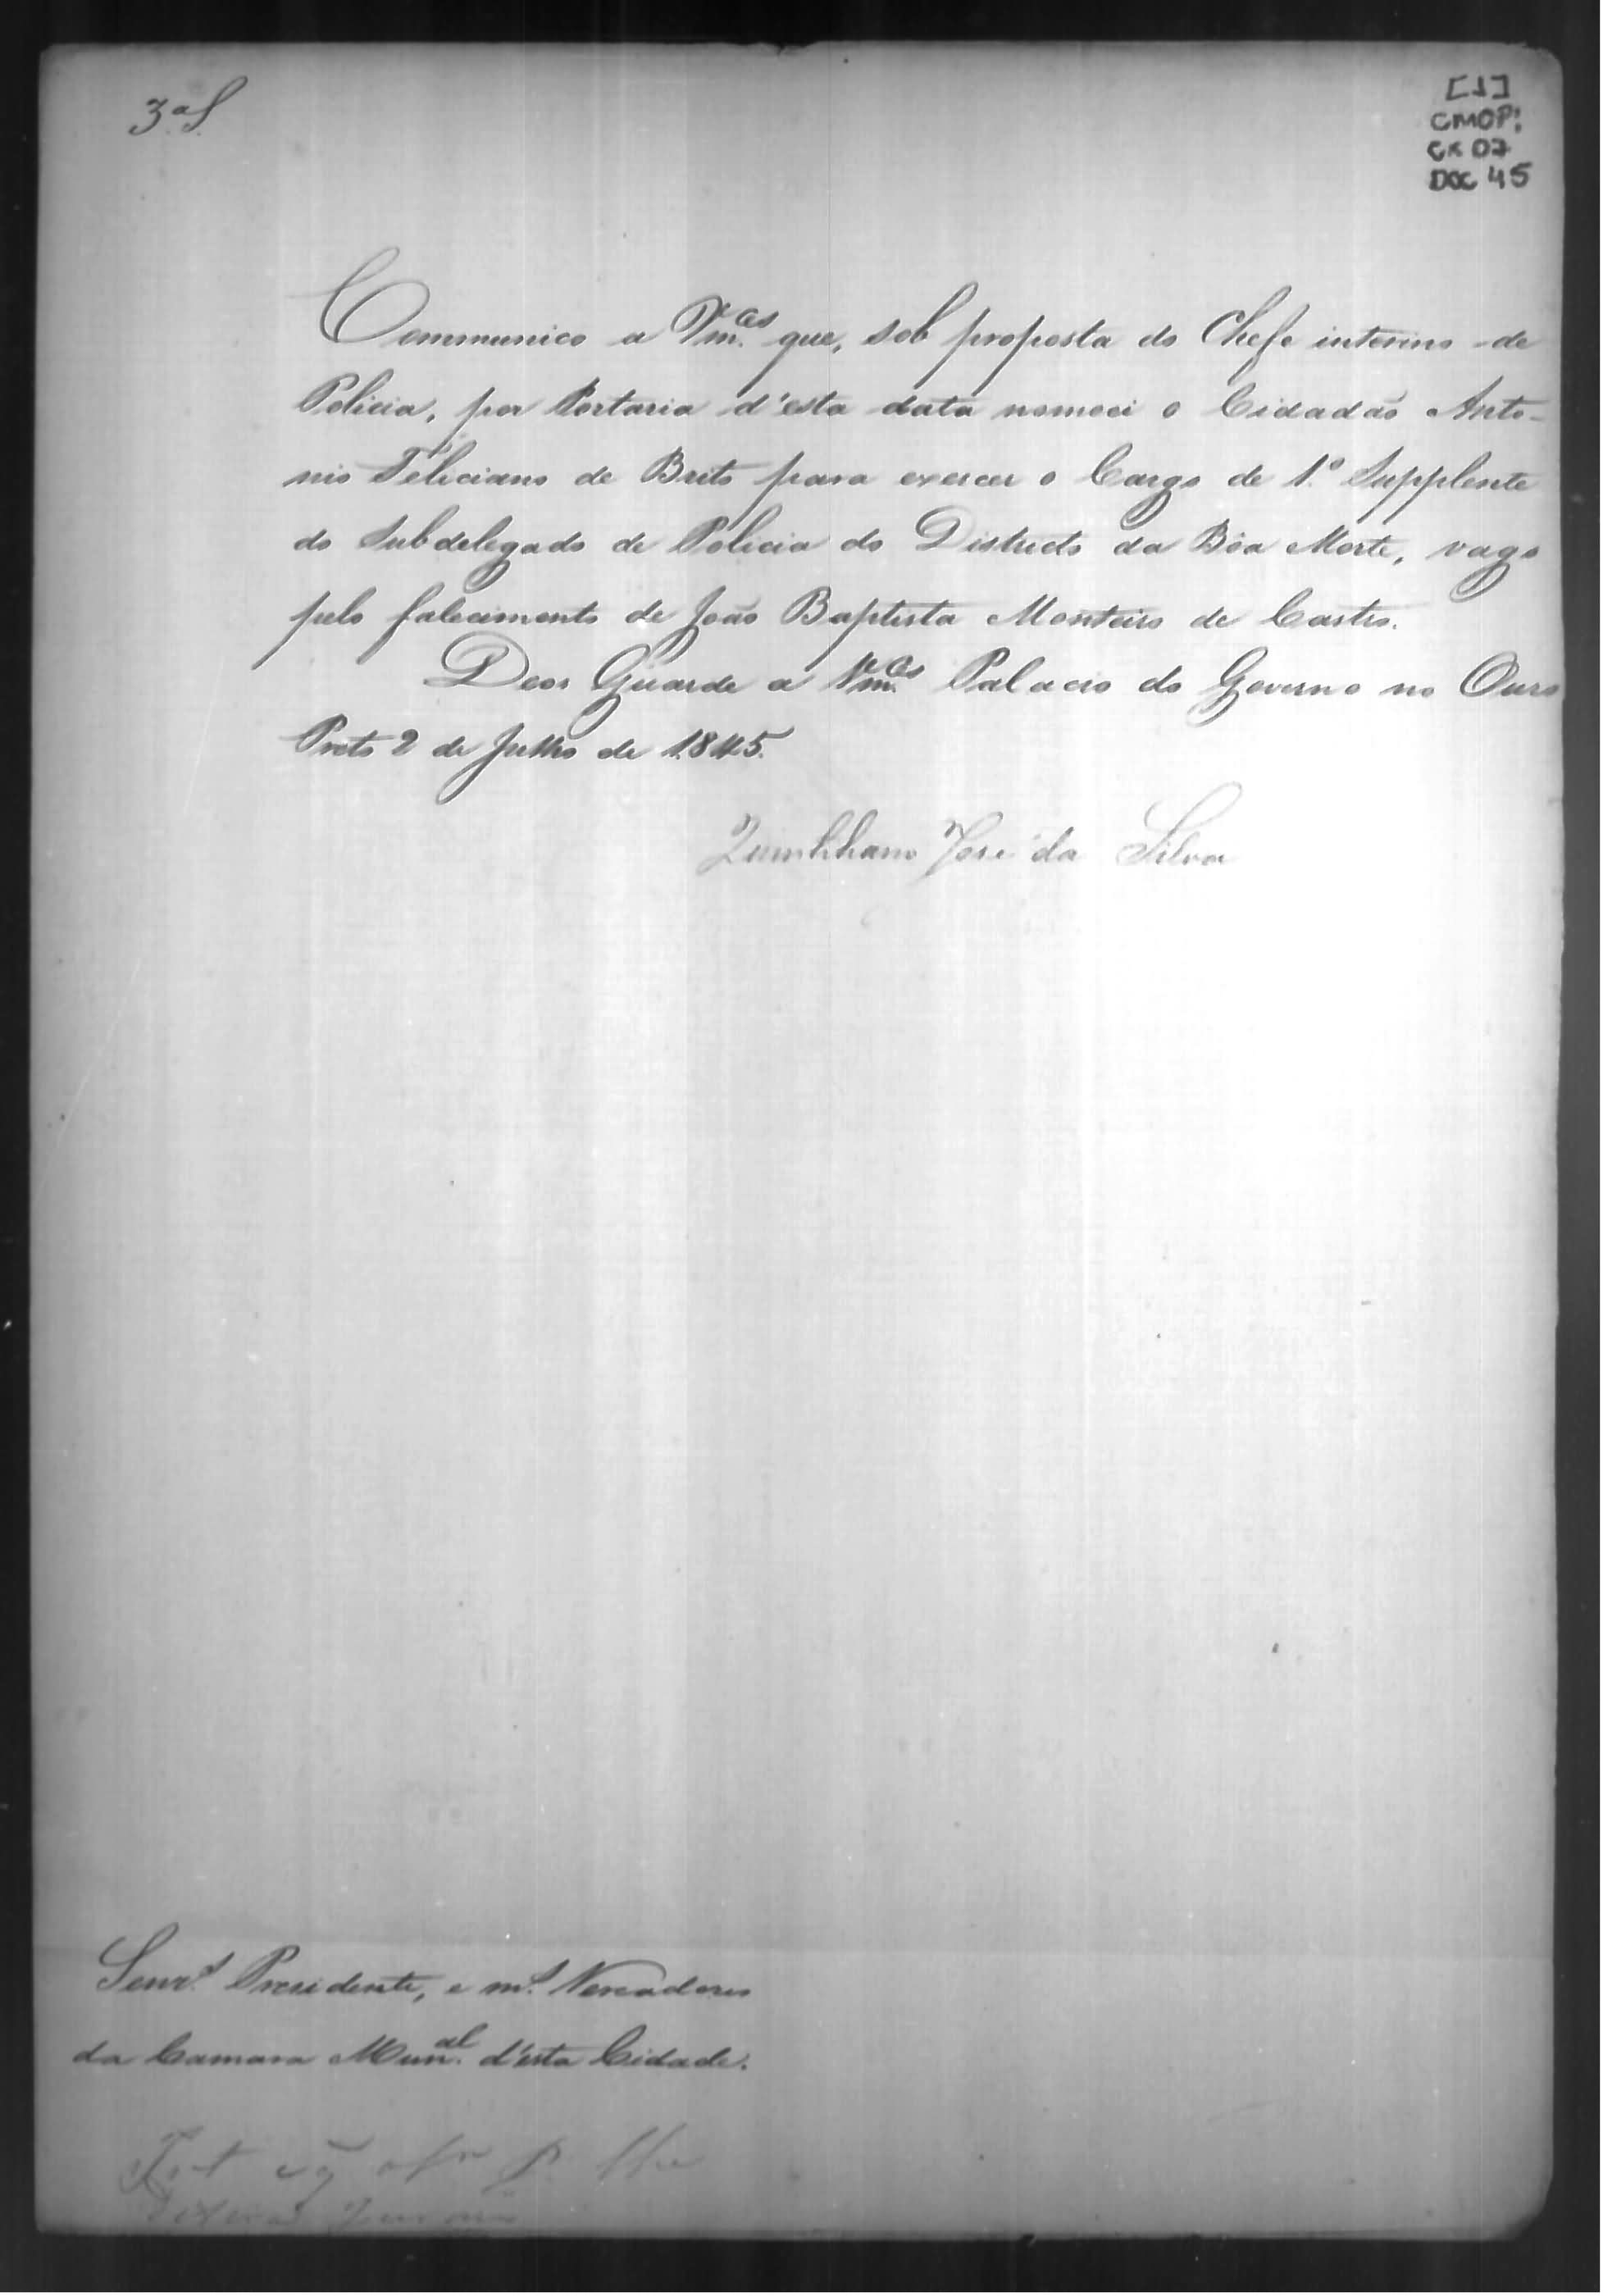 3.ª S.
[1]
CMOP:
CX 07
DOC 45
Communico a Vm.ces que, sob proposta do Chefe interino de
Policia, por Portaria d'esta data nomeei o Cidadão Anto-
nio Feliciano de Brito para exercer o Cargo de 1.º Supplente
do Subdelegado de Policia do Districto da Bôa Morte, vago
pelo falecimento de João Baptista Monteiro de Castro.
Deos Guarde a Vm.ces Palacio do Governo no Ouro
Preto 2 de Julho de 1845.
Quintiliano José da Silva
Senr.s Presidente, e m.s Vereadores
da Camara Mun.al d'esta Cidade.